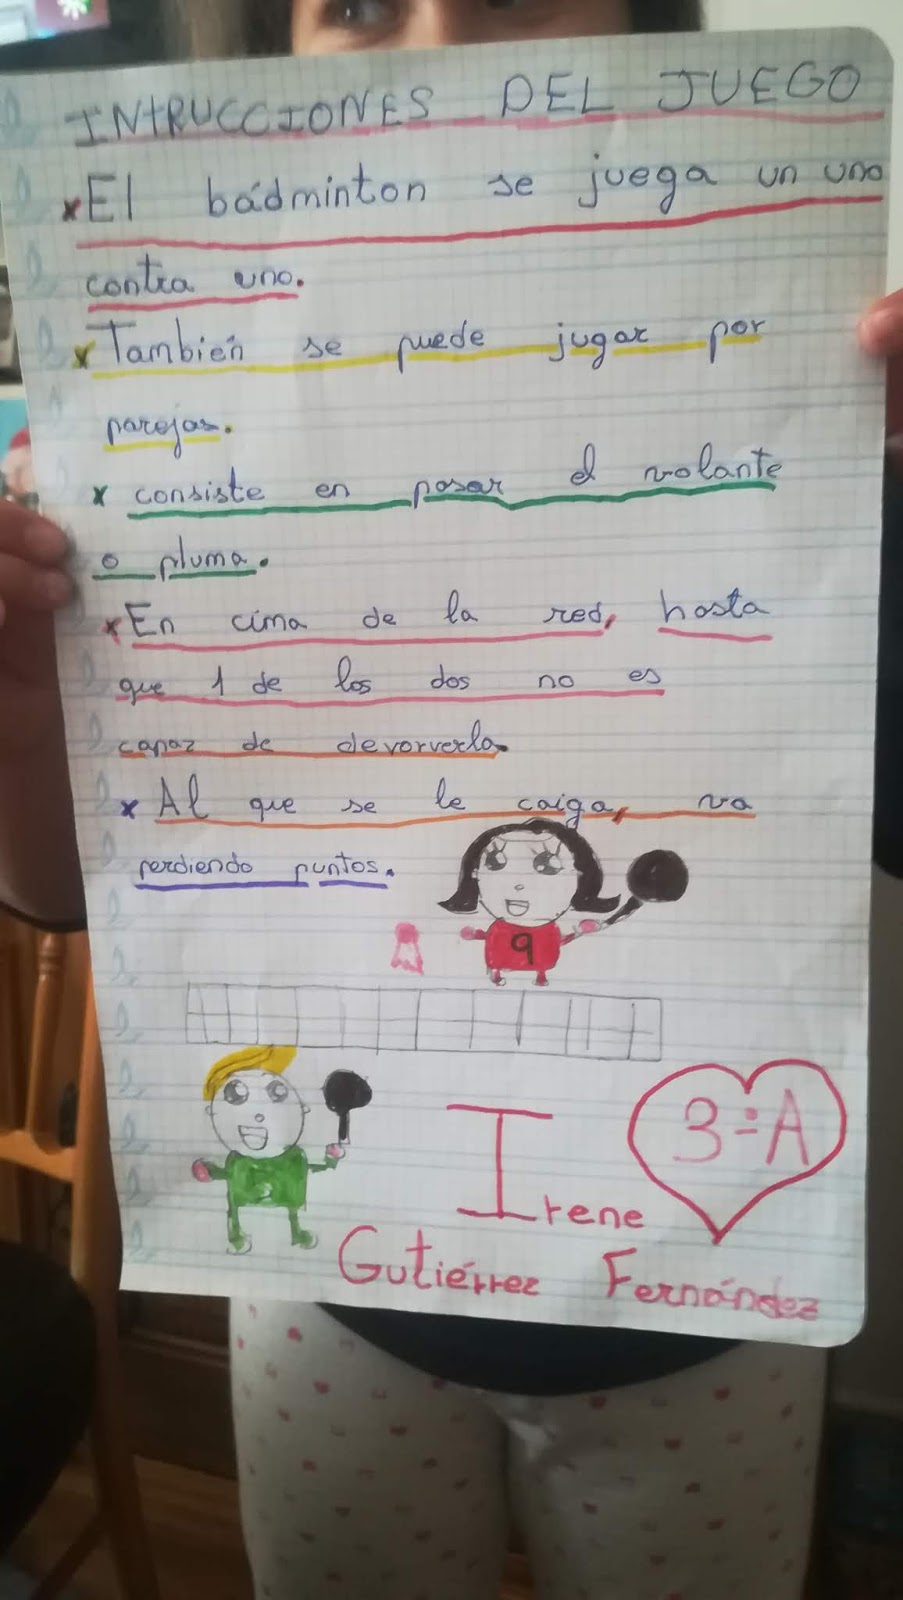 INTRUCCIONES DEL JUEGO
x El bádminton se juega un uno
contra uno.
x También se puede jugar por
parejas.
x consiste en pasar el volante
o pluma.
x En cima de la red, hasta
que 1 de los dos no es
capaz de devorverla.
x Al que se le caiga, va
perdiendo puntos.
9
3=A
Irene
Gutiérrez Fernández